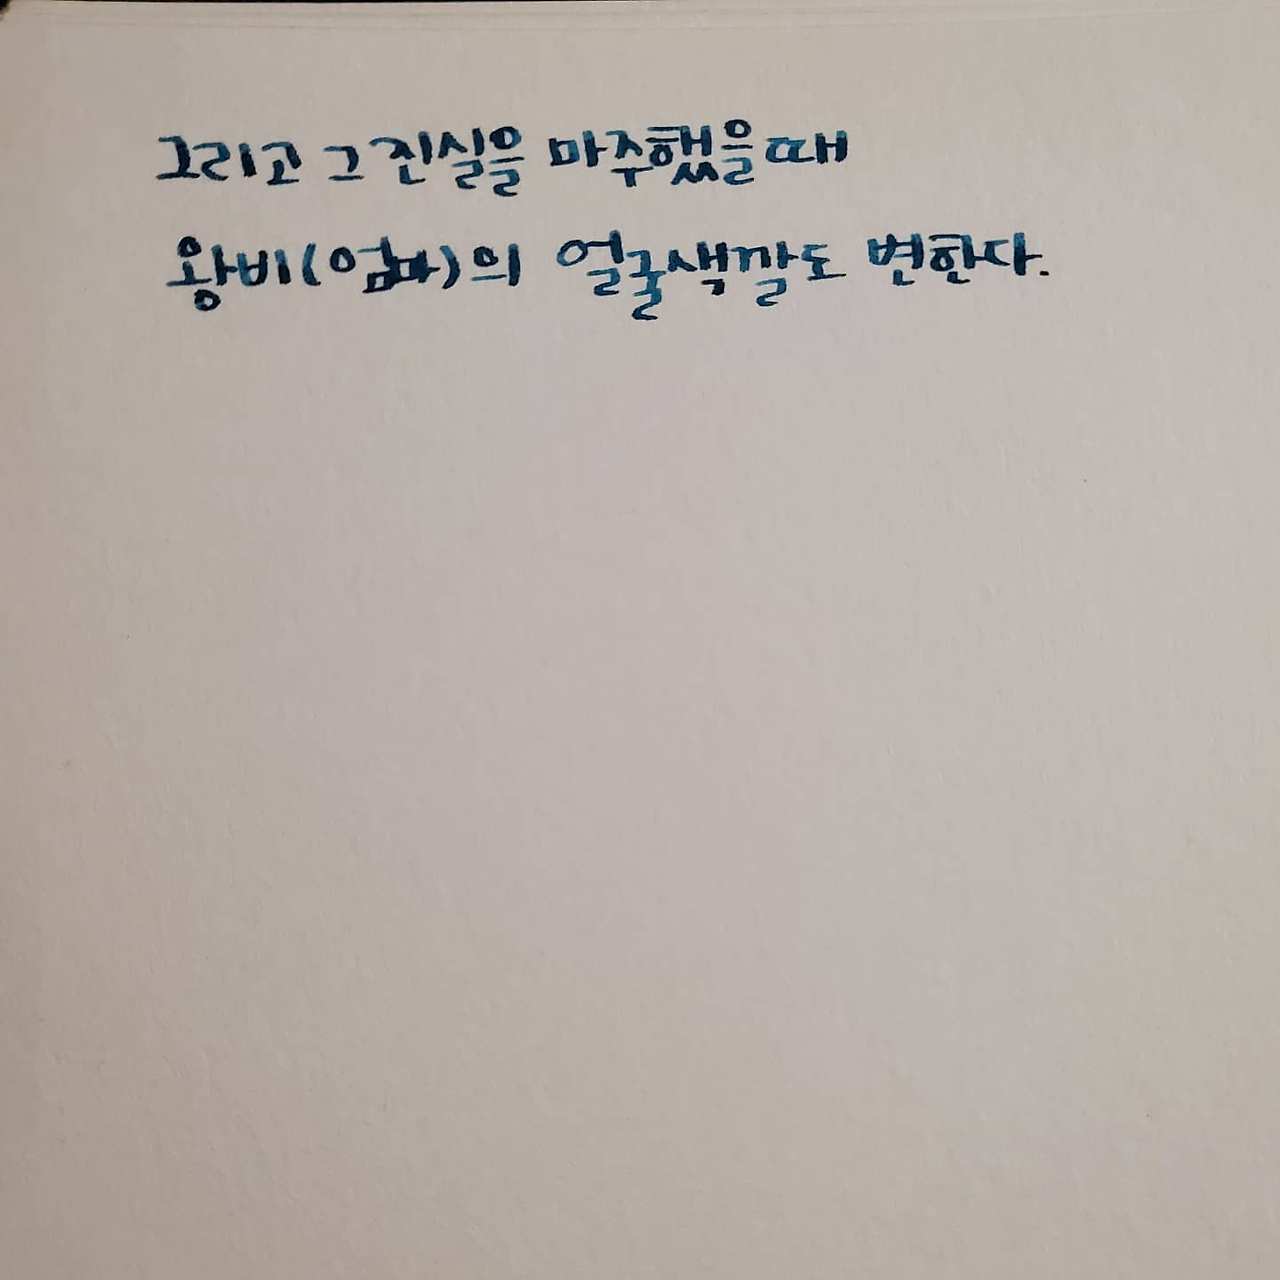 그리고 그 진실을 마주했을때
왕비(엄마)의 얼굴색깔도 변한다.